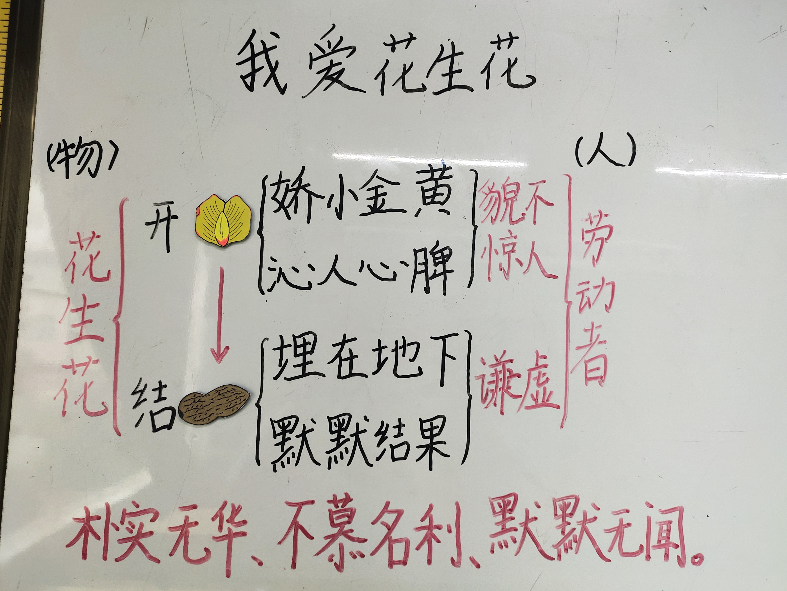 我爱花生花
(物)
(人)
花生花
开
娇小金黄
沁人心脾
貌不
惊人
劳动者
结
埋在地下
默默结果
谦虚
朴实无华、不慕名利、默默无闻。